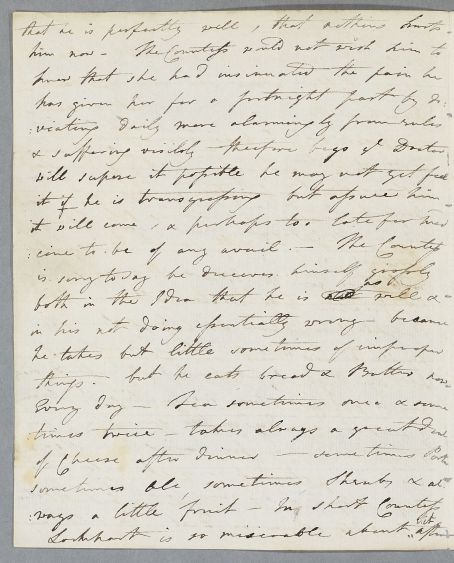 that he is perfectly well, that nothing hurts
him now - The Countess would not wish him to
know that she had insinuated the pain he
has given her for a fortnight past by de
:viating daily more alarmingly from rules
& suffering visibly therefore begs ye Doctor
will supose it possible he may not yet feel
it if he is transgressing but assure him
it will come, & perhaps too late for Med
:cine to be of any avail. - The Countess
is sorry to say he deceives himself grossly
both in the Idea that he is as well &
in his not doing essentially wrong - because
he takes but little sometimes of improper
things. but he eats bread & Butter now
Every day - Tea sometimes once & some
:times twice - takes always a great deal
of Cheese after dinner - sometimes Porter
sometimes Ale sometimes Shrub, & al
:ways a little fruit - In short Countess
Lockhart is so miserable about